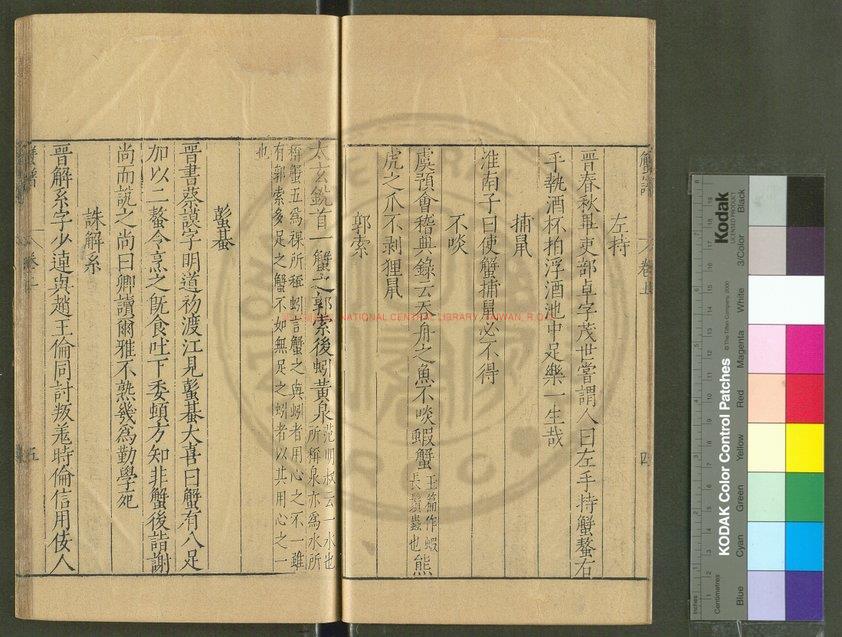 蟹譜 卷上 四
左持
晉春秋畢吏部卓字茂世嘗謂人曰左手持蟹螯右
手執酒杯拍浮酒池中足樂一生哉
捕鼠
淮南子曰使蟹捕鼠必不得
不啖
虞預會稽典錄云吞舟之魚不啖蝦蟹
長鬚蟲也
熊
虎之爪不剥狸鼠
郭索
太玄銳首一蟹之郭索後蚓黃泉
范叔云一水也
所稱泉亦為水所
稱蟹五為裸所稱蚓言蟹之與蚓者用心之不一雖
有郭索多足之蟹不如無足之蚓者以其用心之一
也
蟛蜞
晉書蔡謨字明道初渡江見蟛蜞大喜曰蟹有八足
加以二螯令烹之旣食吐下委頓方知非蟹後詣謝
尚而說之尚曰卿讀爾雅不熟幾為勤學死
誅解系
晉解系字少連與趙王倫同討叛羗時倫信用佞人
五
NATIONAL CENTRAL LIBRARY, TAIWAN, R.O.C.
Kodak
LICENSED PRODUCT
© The Tiffen Company, 2000
KODAK Color Control Patches
Blue Cyan Green Yellow Red Magenta White 3/Color Black
Inches
Centimetres